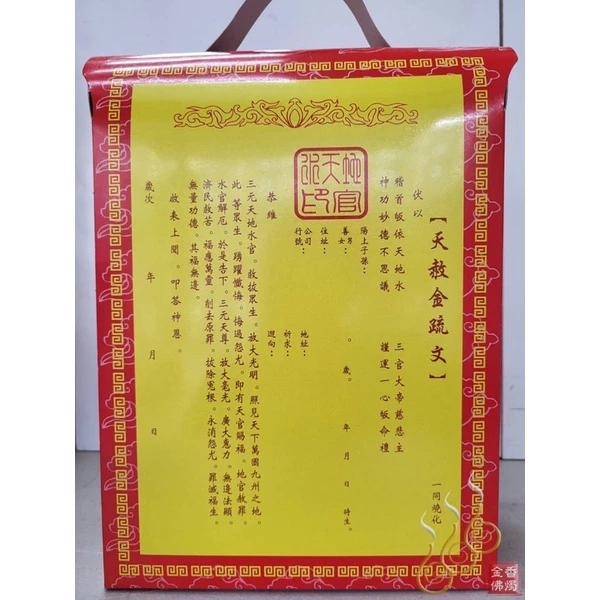 【天赦金疏文】
一同燒化
伏以
稽首皈依天地水 三官大帝慈悲主
神功妙德不思議 謹運一心皈命禮
陽上子孫：
善男女： 。歲。 年 月 日 時生。
住址：
公司行號：
地址：
祈求：
迴向：
地天水官印
恭維
三元天地水官。救拔眾生。放大光明。照見天下萬國九州之地。
此等眾生。踴躍懺悔。悔過怨尤。即有天官賜福。地官赦罪。
水官解厄。於是告下。三元天尊。放大毫光。廣大惠力。無邊法願。
濟民救苦。福應萬靈。削去原罪。拔除冤根。永消怨尤。罪滅福生。
無量功德。其福無邊。
啟表上聞。叩答神恩。
歲次 年 月 日
香燭
金佛